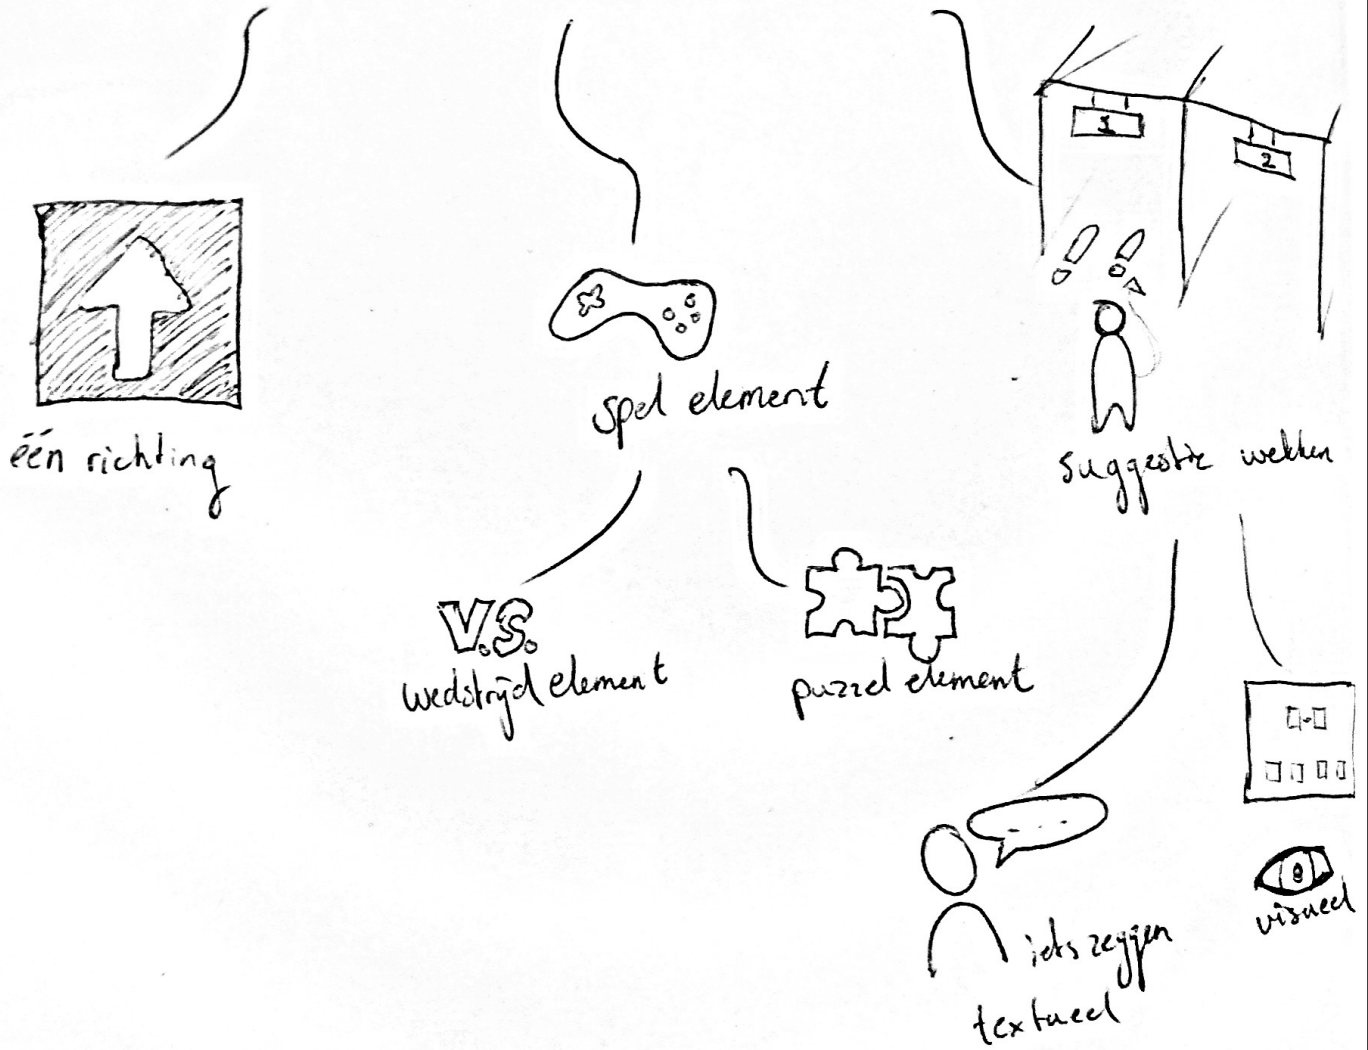 1
2
één richting
spel element
suggestie wekken
V.S.
wedstrijd element
puzzel element
....
iets zeggen
textueel
visueel